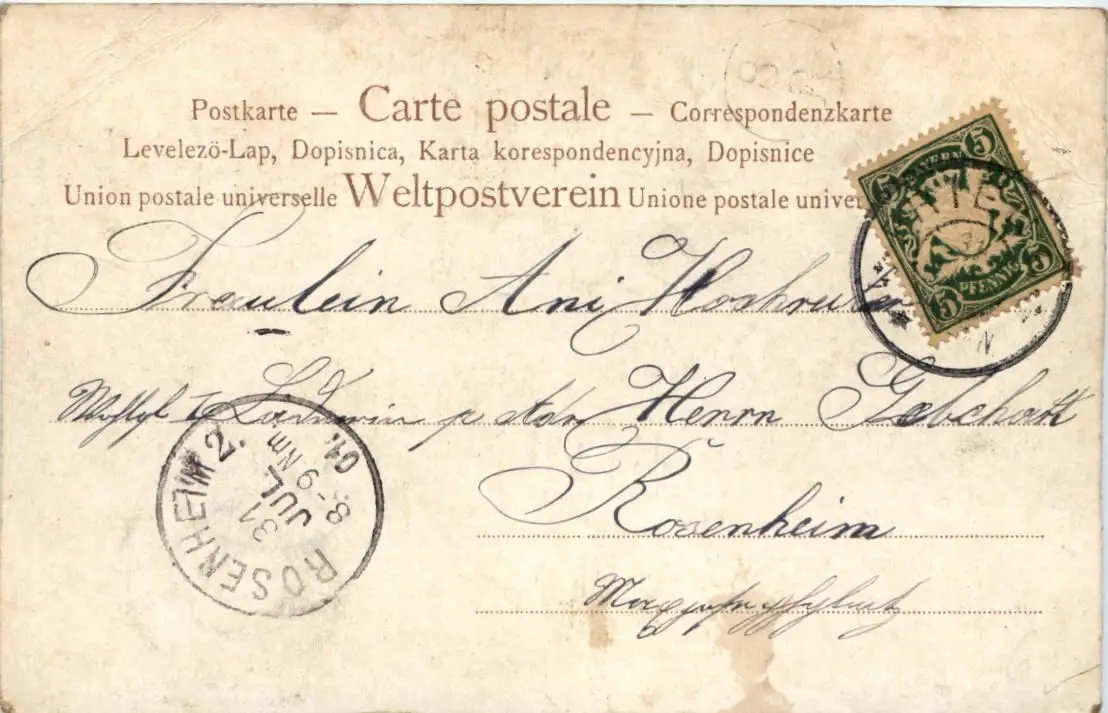 Postkarte — Carte postale — Correspondenzkarte
Levelezö-Lap, Dopisnica, Karta korespondencyjna, Dopisnice
Union postale universelle Weltpostverein Unione postale univer
5 BAYERN 5
5 PFENNIG 5
Fräulein Ani
Herrn
Rosenheim
ROSENHEIM 2.
31
JUL
8-9 Nm
04.